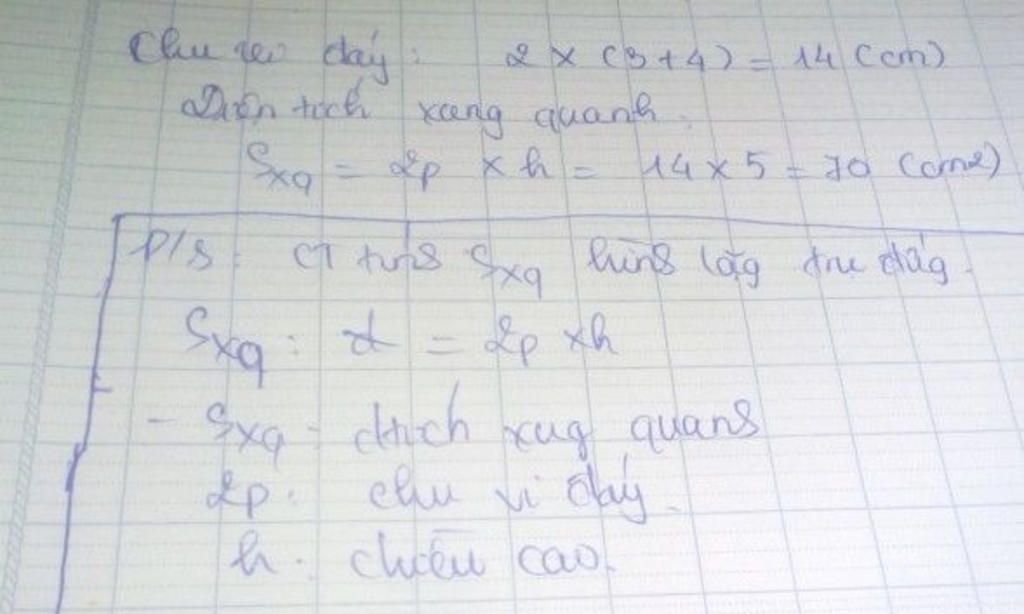 Chu vi đáy: 2 x (3+4) = 14 (cm)
Diện tích xung quanh.
Sxq = 2p x h = 14 x 5 = 70 (cm2)
P/s: CT tính Sxq hình lăg trụ đứg.
Sxq: = 2p xh
- Sxq: dtích xug quanh
2p: chu vi đáy.
h: chiều cao.